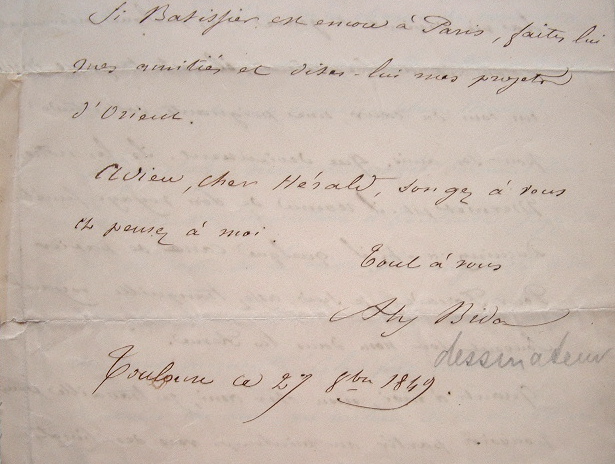 Si Batissier est encore à Paris, faites lui
mes amitiés et dites-lui mes projets
d'Orient.
Adieu, cher Hérald, songez à vous
et pensez à moi.
Tout à vous
Bida
dessinateur
Toulouse ce 27 8bre 1849.